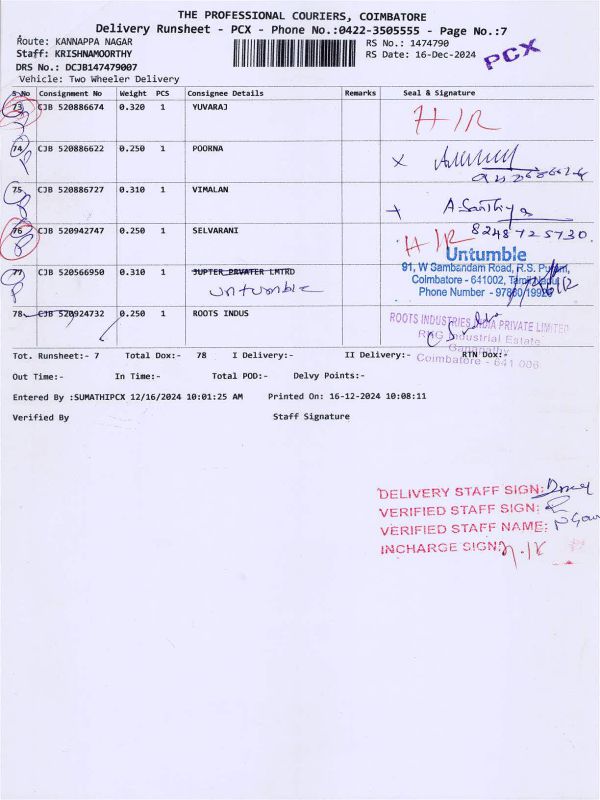 THE PROFESSIONAL COURIERS, COIMBATORE
Delivery Runsheet - PCX - Phone No.:0422-3505555 - Page No.:7
Route: KANNAPPA NAGAR RS No.: 1474790 PCX
Staff: KRISHNAMOORTHY RS Date: 16-Dec-2024
DRS No.: DCJB147479007
Vehicle: Two Wheeler Delivery
S.No Consignment No Weight PCS Consignee Details Remarks Seal & Signature
73 CJB 520886674 0.320 1 YUVARAJ H/R
74 CJB 520886622 0.250 1 POORNA X
75 CJB 520886727 0.310 1 VIMALAN + A. Santhiya
8248725730
76 CJB 520942747 0.250 1 SELVARANI H/R
Untumble
77 CJB 520566950 0.310 1 SUPTER PRVATER LMTRD 91, W Sambandam Road, R.S. Puram,
untumble Coimbatore - 641002, Tamil Nadu
Phone Number -
78 CJB 520924732 0.250 1 ROOTS INDUS ROOTS INDUSTRIES INDIA PRIVATE LIMITED
RKG Industrial Estate
Ganapathy
Coimbatore - 641 006
Tot. Runsheet:- 7 Total Dox:- 78 I Delivery:- II Delivery:- RTN Dox:-
Out Time:- In Time:- Total POD:- Delvy Points:-
Entered By :SUMATHIPCX 12/16/2024 10:01:25 AM Printed On: 16-12-2024 10:08:11
Verified By Staff Signature
DELIVERY STAFF SIGN:
VERIFIED STAFF SIGN:
VERIFIED STAFF NAME:
INCHARGE SIGN: